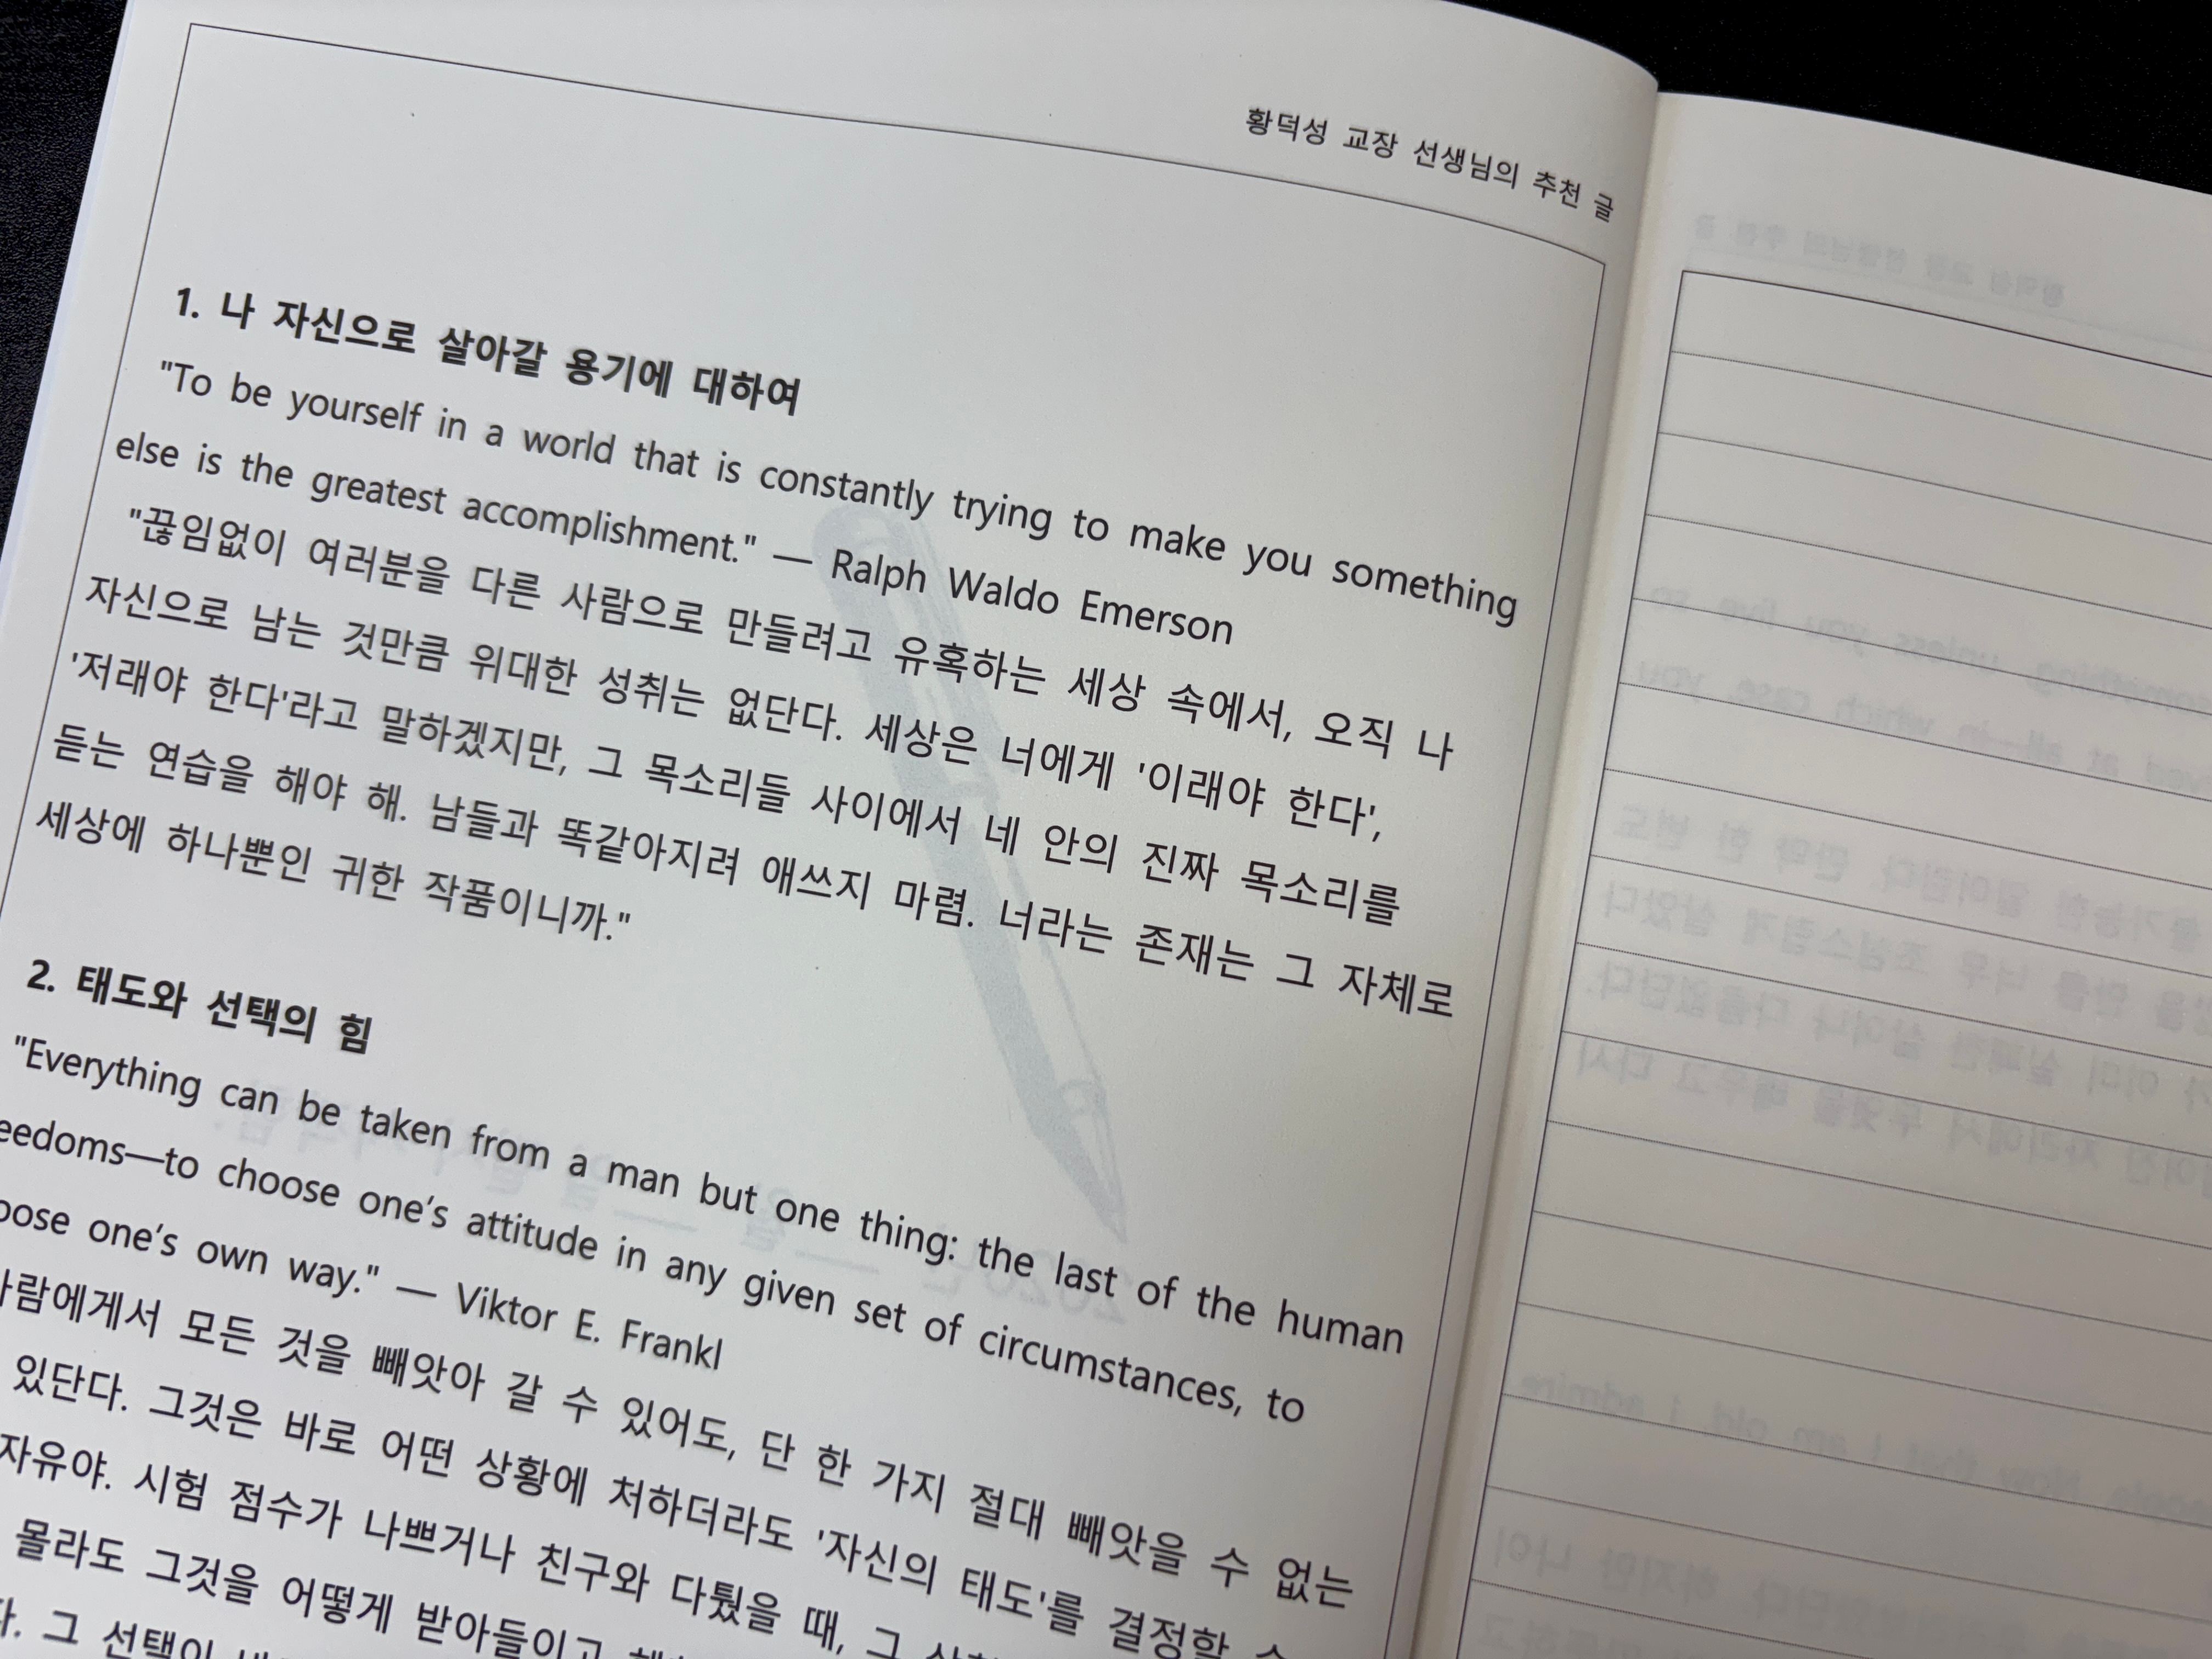 황덕성 교장 선생님의 추천 글
1. 나 자신으로 살아갈 용기에 대하여
"To be yourself in a world that is constantly trying to make you something
else is the greatest accomplishment." — Ralph Waldo Emerson
"끊임없이 여러분을 다른 사람으로 만들려고 유혹하는 세상 속에서, 오직 나
자신으로 남는 것만큼 위대한 성취는 없단다. 세상은 너에게 '이래야 한다',
'저래야 한다'라고 말하겠지만, 그 목소리들 사이에서 네 안의 진짜 목소리를
듣는 연습을 해야 해. 남들과 똑같아지려 애쓰지 마렴. 너라는 존재는 그 자체로
세상에 하나뿐인 귀한 작품이니까."
2. 태도와 선택의 힘
"Everything can be taken from a man but one thing: the last of the human
eedoms—to choose one’s attitude in any given set of circumstances, to
oose one’s own way." — Viktor E. Frankl
람에게서 모든 것을 빼앗아 갈 수 있어도, 단 한 가지 절대 빼앗을 수 없는
있단다. 그것은 바로 어떤 상황에 처하더라도 '자신의 태도'를 결정할 수
자유야. 시험 점수가 나쁘거나 친구와 다퉜을 때, 그
몰라도 그것을 어떻게 받아들이고
그 선택이